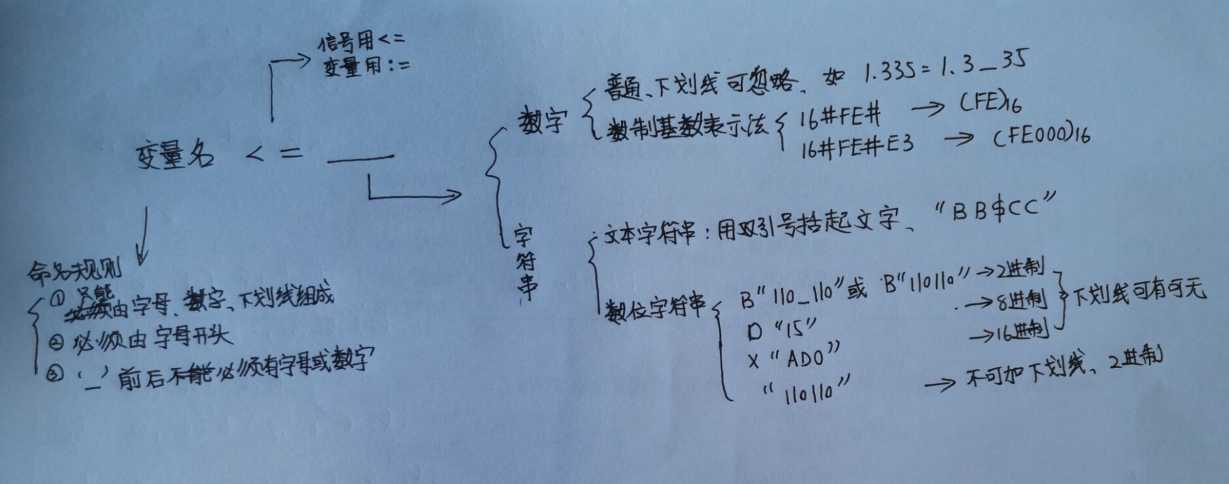 信号用<=
变量用:=
变量名 <= ___
命名规则
① 只能由字母、数字、下划线组成
② 必须由字母开头
③ '_' 前后必须有字母或数字
数字
普通、下划线可忽略、如 1.335=1.3_35
数制基数表示法
16#FE# → (FE)16
16#FE#E3 → (FE000)16
字符串
文本字符串:用双引号括起文字、"BB$CC"
数位字符串
B"110_110"或 B"110110" →2进制
O "15" →8进制
X "AD0" →16进制
下划线可有可无
"110110" → 不可加下划线、2进制